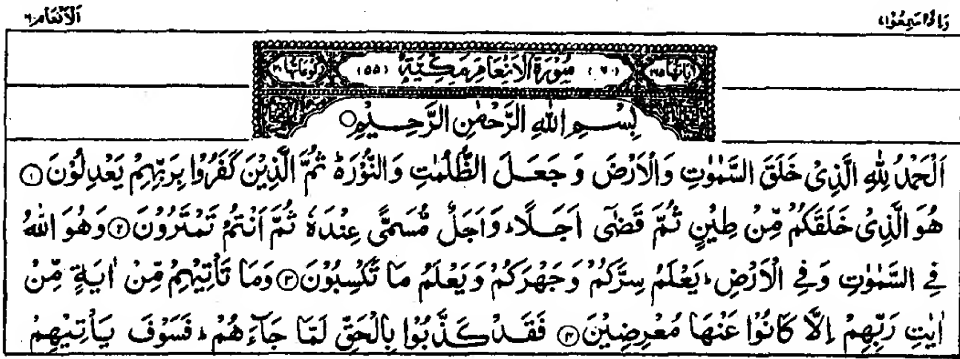 وَاِذَا سَمِعُوْا٧ الْاَنْعَام٦
اٰيَاتُهَا ١٦٥ (٦) سُوْرَةُ الْاَنْعَامِ مَكِّيَّةٌ (٥٥) رُكُوْعَاتُهَا ٢٠
بِسْمِ اللهِ الرَّحْمٰنِ الرَّحِيْمِ
اَلْحَمْدُ لِلّٰهِ الَّذِيْ خَلَقَ السَّمٰوٰتِ وَالْاَرْضَ وَجَعَلَ الظُّلُمٰتِ وَالنُّوْرَ ۗ ثُمَّ الَّذِيْنَ كَفَرُوْا بِرَبِّهِمْ يَعْدِلُوْنَ ①
هُوَ الَّذِيْ خَلَقَكُمْ مِّنْ طِيْنٍ ثُمَّ قَضٰٓى اَجَلًا ۗ وَاَجَلٌ مُّسَمًّى عِنْدَهٗ ثُمَّ اَنْتُمْ تَمْتَرُوْنَ ② وَهُوَ اللهُ
فِي السَّمٰوٰتِ وَفِي الْاَرْضِ ۗ يَعْلَمُ سِرَّكُمْ وَجَهْرَكُمْ وَيَعْلَمُ مَا تَكْسِبُوْنَ ③ وَمَا تَأْتِيْهِمْ مِّنْ اٰيَةٍ مِّنْ
اٰيٰتِ رَبِّهِمْ اِلَّا كَانُوْا عَنْهَا مُعْرِضِيْنَ ④ فَقَدْ كَذَّبُوْا بِالْحَقِّ لَمَّا جَآءَهُمْ ۗ فَسَوْفَ يَأْتِيْهِمْ